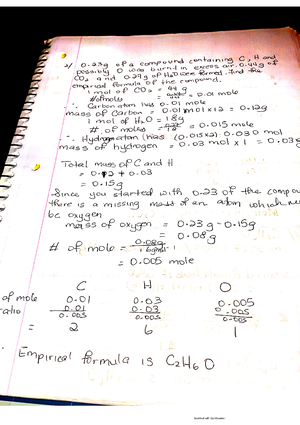 2/ 0.23g of a compound containing C, H and
possibly O was burnd in excess air. 0.44g of
CO2 and 0.27g of H2O were formed, find the
empirical formula of the compound.
1 mol of CO2 = 44 g
# of moles = = 0.01 mole
∴ Carbon atom has 0.01 mole
mass of Carbon = 0.01 mol x 12 = 0.12g
1 mol of H2O = 18g
# of moles = 0.27/18 = 0.015 mole
∴ Hydrogen atom (has (0.015x2): 0.030 mol
mass of hydrogen = 0.03 mol x 1 = 0.03g
Total mass of C and H
= 0.12 + 0.03
= 0.15g
Since you started with 0.23 of the compou
there is a missing mass of an atom which
be oxygen
mass of oxygen = 0.23g - 0.15g
= 0.08g
# of mole = 0.08g
= 0.005 mole
C H O
of mole 0.01 0.03 0.005
ratio 0.01/0.005 0.03/0.005 0.005/0.005
= 2 6 1
Empirical formula is C2H6O